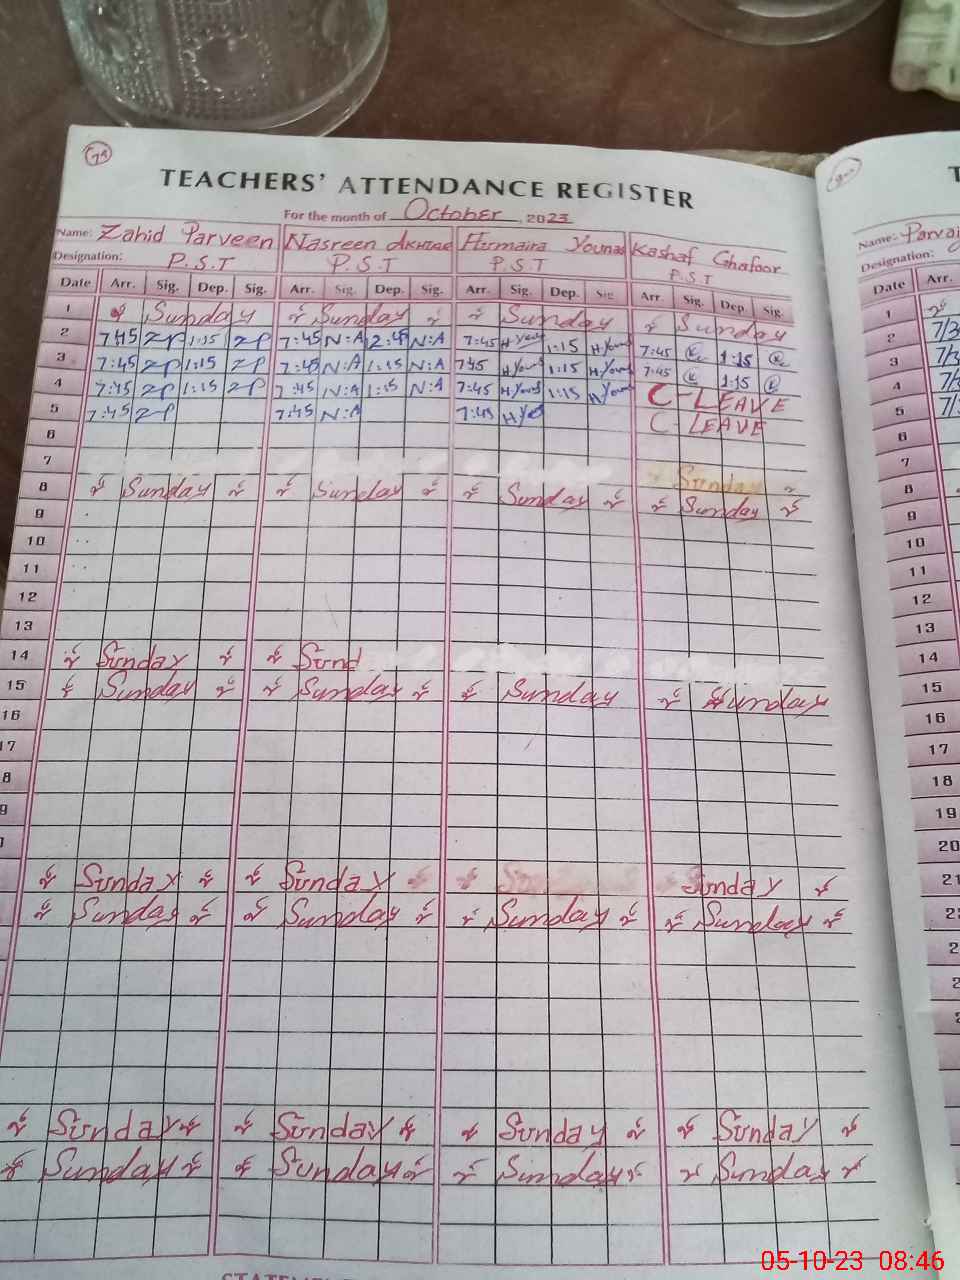 TEACHERS' ATTENDANCE REGISTER
For the month of October, 2023
Name: Zahid Parveen Nasreen Akhtar Humaira Younas Kashaf Ghafoor
Designation: P.S.T P.S.T P.S.T P.S.T
Date Arr. Sig. Dep. Sig. Arr. Sig. Dep. Sig. Arr. Sig. Dep. Sig. Arr. Sig. Dep. Sig.
1 Sunday Sunday Sunday Sunday
2 7:45 ZP 1:15 ZP 7:45 N:A 2:45 N:A 7:45 H.Youn 1:15 H.Youn 7:45 1:15
3 7:45 ZP 1:15 ZP 7:45 N:A 1:15 N:A 7:45 H.Youn 1:15 H.Youn 7:45 1:15
4 7:45 ZP 1:15 ZP 7:45 N:A 1:15 N:A 7:45 H.Youn 1:15 H.Youn C-LEAVE
5 7:45 ZP 7:45 N:A 7:45 C-LEAVE
6
7 Sunday
8 Sunday Sunday Sunday Sunday
9
10
11
12
13
14 Sunday Sund
15 Sunday Sunday Sunday Sunday
16
17
8
9
Sunday Sunday Sunday
Sunday Sunday Sunday Sunday
Sunday Sunday Sunday Sunday
Sunday Sunday Sunday Sunday
T
Name: Parvai
Designation:
Date Arr.
1
2 7/3
3 7/3
4
5
6
7
8
9
10
11
12
13
14
15
16
17
18
19
20
21
2
2
2
05-10-23 08:46